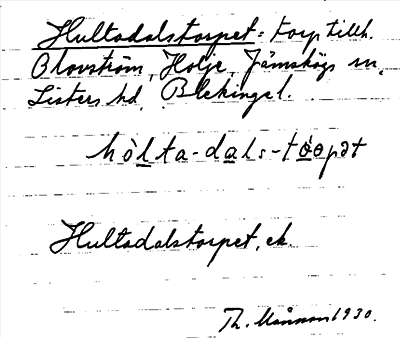 Hultadalstorpet: torp tillh.
Olovström, Holje, Jämshögs sn,
Listers hd, Blekinge l.
hòlta-dals-tòrpət
Hultadalstorpet, ek.
Th. Månsson 1930.